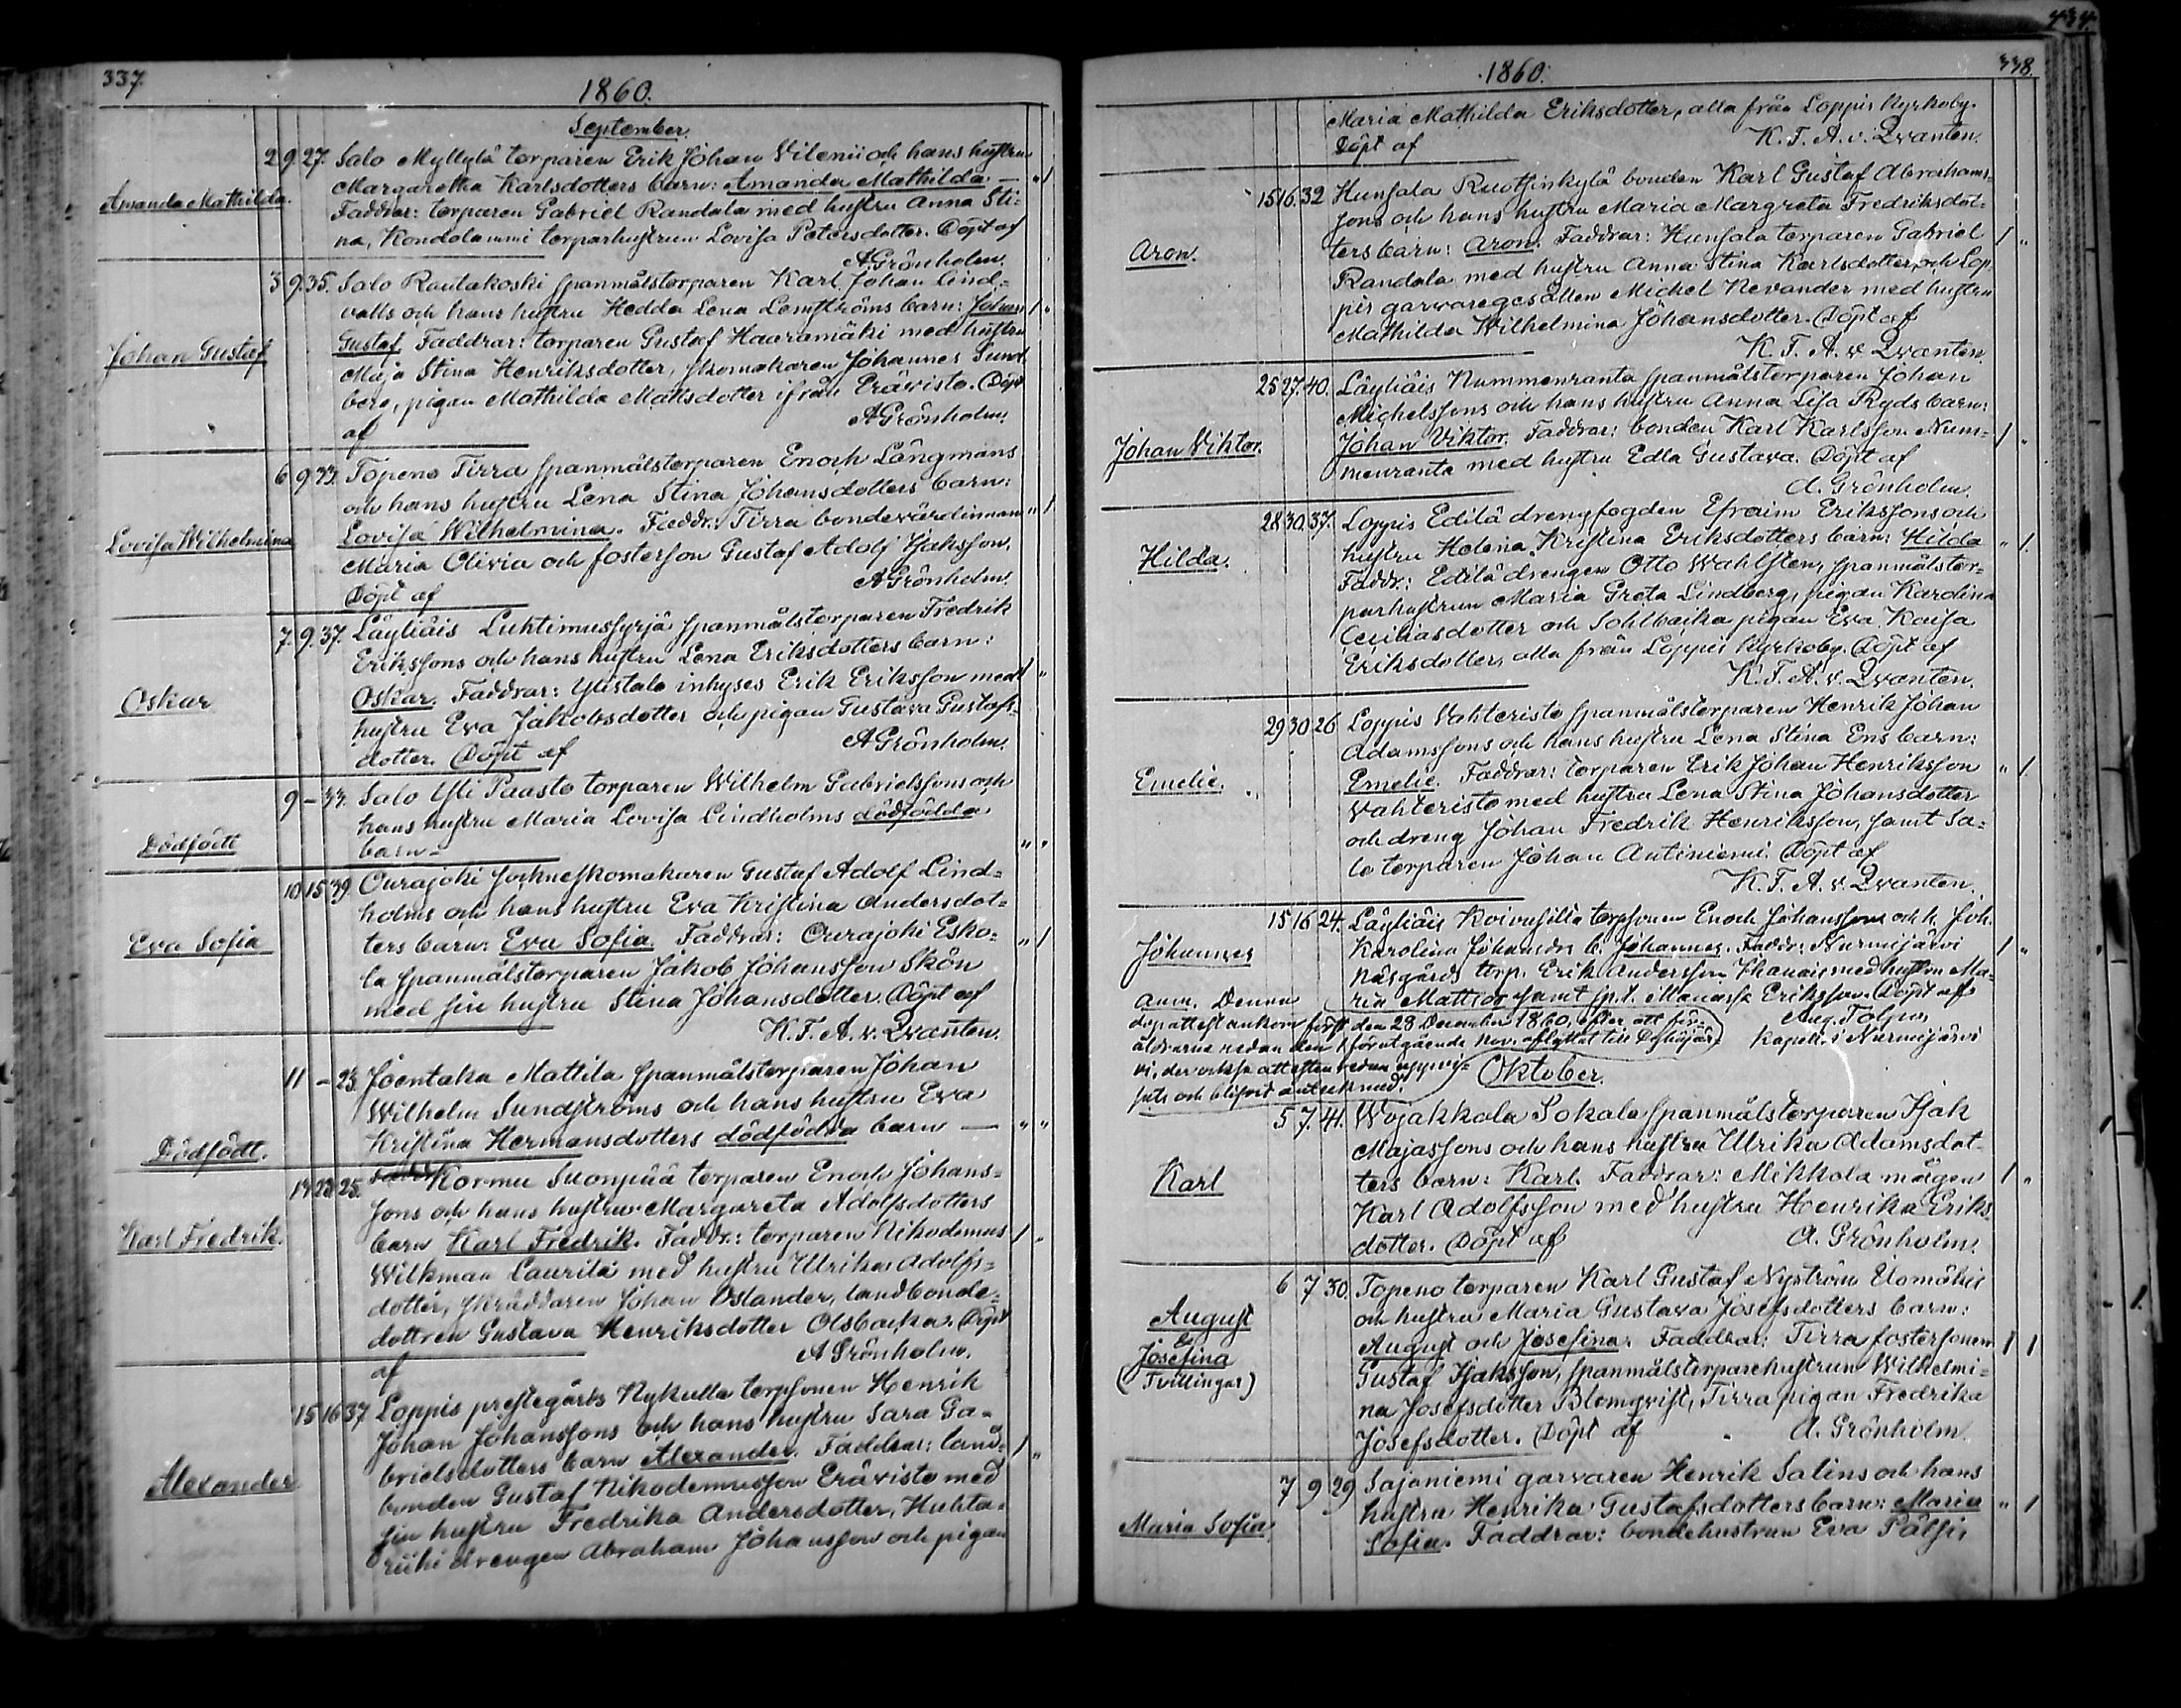 337.
1860.
September.
Amanda Mathilda.
2 9 27. Salo Myllylä torparen Erik Johan Vilenii och hans hustru
Margaretha Karlsdotters barn: Amanda Mathilda. — " 1
Faddrar: torparen Gabriel Randala med hustru Anna Sti-
na, Kondolammi torparhustrun Lovisa Petersdotter. Döpt af
A Grönholm.
Johan Gustaf
3 9 35. Salo Rautakoski spanmålstorparen Karl Johan Lind-
valls och hans hustru Hedda Lena Lemströms barn: Johan 1 "
Gustaf. Faddrar: torparen Gustaf Haaramäki med hustru
Maja Stina Henriksdotter, skomakaren Johannes Sund-
berg, pigan Mathilda Matsdotter ifrån Erävisto. Döpt
af A Grönholm.
Lovisa Wilhelmina
6 9 33. Topeno Tirra spanmålstorparen Enoch Långmans
och hans hustru Lena Stina Johansdotters barn:
Lovisa Wilhelmina. Faddr: Tirra bondevärdinnan " 1
Maria Olivia och fosterson Gustaf Adolf Isaksson.
Döpt af A Grönholm.
Oskar
7. 9. 37. Läyliäis Luhtimussyrjä spanmålstorparen Fredrik
Erikssons och hans hustru Lena Eriksdotters barn:
Oskar. Faddrar: Ylistalo inhyses Erik Eriksson med 1 "
hustru Eva Jakobsdotter och pigan Gustava Gustafs-
dotter. Döpt af A Grönholm.
Dödfödt
9 – 33. Salo Yli Paasto torparen Wilhelm Gabrielssons och
hans hustru Maria Lovisa Lindholms dödfödda
barn – " "
Eva Sofia
10 15 39. Ourajoki sockneskomakaren Gustaf Adolf Lind-
holms och hans hustru Eva Kristina Andersdot-
ters barn: Eva Sofia. Faddrar: Ourajoki Esko- " 1
la spanmålstorparen Jakob Johansson Skön
med sin hustru Stina Johansdotter. Döpt af
K. F. A. v. Qvanten.
Dödfödt.
11 – 23. Joentaka Mattila spanmålstorparen Johan
Wilhelm Sundströms och hans hustru Eva
Kristina Hermansdotters dödfödda barn — " "
Karl Fredrik.
14 23 25. Kormu Suonpää torparen Enoch Johans-
sons och hans hustru Margareta Adolfsdotters
barn Karl Fredrik. Faddr: torparen Nikodemus 1 "
Wilkman Laurila med hustru Ulrika Adolfs-
dotter, skräddaren Johan Oslander, landbonde-
dottren Gustava Henriksdotter Olsbacka. Döpt
af A Grönholm.
Alexander
15 16 37 Loppis prestegårds Nykulla torpsonen Henrik
Johan Johanssons och hans hustru Sara Ga-
brielsdotters barn Alexander. Faddrar: land- 1 "
bonden Gustaf Nikodemusson Erävisto med
sin hustru Fredrika Andersdotter, Huhta-
riihi drengen Abraham Johansson och pigan
434.
1860.
338.
Maria Mathilda Eriksdotter, alla från Loppis Kyrkoby.
Döpt af K. F. A. v. Qvanten.
Aron.
15 16. 32 Hunsala Ruotsinkylä bonden Karl Gustaf Abrahams-
sons och hans hustru Maria Margreta Fredriksdot-
ters barn: Aron. Faddrar: Hunsala torparen Gabriel 1 "
Randala med hustru Anna Stina Karlsdotter, och Lop-
pis garvaregesällen Michel Nevander med hustru
Mathilda Wilhelmina Johansdotter. Döpt af
K. F. A. v Qvanten.
Johan Viktor.
25 27. 40. Läyliäis Nummenranta spanmålstorparen Johan
Michelssons och hans hustru Anna Lisa Ryds barn:
Johan Viktor. Faddrar: bonden Karl Karlsson Num- 1 "
menranta med hustru Edla Gustava. Döpt af
A. Grönholm.
Hilda.
28 30. 37. Loppis Edilä drengfogden Efraim Erikssons och
hustru Helena Kristina Eriksdotters barn: Hilda " 1.
Faddr: Edilä drengen Otto Wahlsten, spanmålstor-
parhustrun Maria Greta Lindberg, pigan Karolina
Ceciliasdotter och Sohlbacka pigan Eva Kaisa
Eriksdotter, alla från Loppis Kyrkoby. Döpt af
K. F. A. v. Qvanten.
Emelie.
29 30 26 Loppis Vahteristo spanmålstorparen Henrik Johan
Adamssons och hans hustru Lena Stina Ens barn:
Emelie. Faddrar: torparen Erik Johan Henriksson " 1.
Vahteristo med hustru Lena Stina Johansdotter
och dreng Johan Fredrik Henriksson, samt Sa-
lo torparen Johan Antiniemi. Döpt af
K. F. A. v. Qvanten.
Johannes
15 16 24. Läyliäis Koivusilta torpsonen Enoch Johanssons och h. Joh.
Karolina Johansdr b. Johannes. Faddr: Nurmijärvi 1 "
Näsgårds torp. Erik Andersson med hustru Ma-
ria Mattsdr samt sp.t. Manasse Eriksson. Döpt af
Anm. Denna
dopattest ankom först den 28 December 1860, efter att för-
Aug. Tolpo,
äldrarne redan den 1 förutgående Nov. aflyttat till
kapell. i Nurmijärvi
vi, der också attesten redan uppvi-
sats och blifvit antecknad.
Oktober.
Karl
5 7. 41. Wojakkala Sokala spanmålstorparen Isak
Majassons och hans hustru Ulrika Adamsdot-
ters barn: Karl. Faddrar: Mikkola mågen 1 "
Karl Adolfsson med hustru Henrika Eriks-
dotter. Döpt af A. Grönholm.
August
&
Josefina
(Tvillingar)
6 7 30. Topeno torparen Karl Gustaf Nyström Uomäkis
och hustru Maria Gustava Josefsdotters barn:
August och Josefina. Faddrar: Tirra fostersonen 1 1
Gustaf Isaksson, spanmålstorparehustrun Wilhelmi-
na Josefsdotter Blomqvist, Tirra pigan Fredrika
Josefsdotter. Döpt af A. Grönholm
Maria Sofia
7 9 29 Sajaniemi garvaren Henrik Salins och hans
hustru Henrika Gustafsdotters barn: Maria " 1
Sofia. Faddrar: bondehustrun Eva Pälsi,